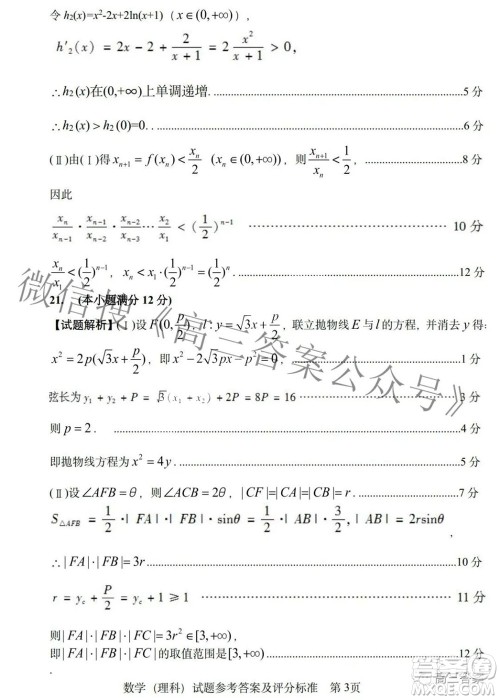 令 h₂(x)=x²-2x+2ln(x+1)（x∈(0,+∞)），
h′₂(x) = 2x − 2 + 2/(x+1) = 2 x²/(x+1) > 0，
∴h₂(x)在(0,+∞)上单调递增.……5 分
∴h₂(x)＞h₂(0)=0.……6 分
(Ⅱ)由(Ⅰ)得 xₙ₊₁ = f(xₙ) < xₙ/2 （xₙ∈(0,+∞)），则 xₙ₊₁/xₙ < 1/2，……8 分
因此
xₙ/xₙ₋₁ · xₙ₋₁/xₙ₋₂ · xₙ₋₂/xₙ₋₃ ⋯ x₂/x₁ < (1/2)ⁿ⁻¹ …… 10 分
xₙ/x₁ < (1/2)ⁿ⁻¹，xₙ < x₁·(1/2)ⁿ⁻¹ = (1/2)ⁿ.……12 分
21. （本小题满分 12 分）
【试题解析】(Ⅰ)设 F(0, p/2)，l：y = √3x + p/2，联立抛物线 E 与 l 的方程，并消去 y 得：
x² = 2p(√3x + p/2)，即 x² − 2√3px − p² = 0，……1 分
弦长为 y₁ + y₂ + P = √3(x₁ + x₂) + 2P = 8P = 16 …… 3 分
则 p = 2．……4 分
即抛物线方程为 x² = 4y．……5 分
(Ⅱ)设∠AFB=θ，则∠ACB=2θ，|CF|=|CA|=|CB|=r．……7 分
S△AFB = 1/2 ·|FA|·|FB|·sinθ = 1/2 ·|AB|· 3/2，|AB| = 2rsinθ，
∴|FA|·|FB|=3r……10 分
r = y_c + P/2 = y_c + 1 ≥ 1 …… 11 分
则|FA|·|FB|·|FC|=3r²∈[3,+∞)，
即|FA|·|FB|·|FC|的取值范围是[3,+∞)……12 分
数学（理科）试题参考答案及评分标准 第 3页
微信搜《高三答案公众号》
高三答案